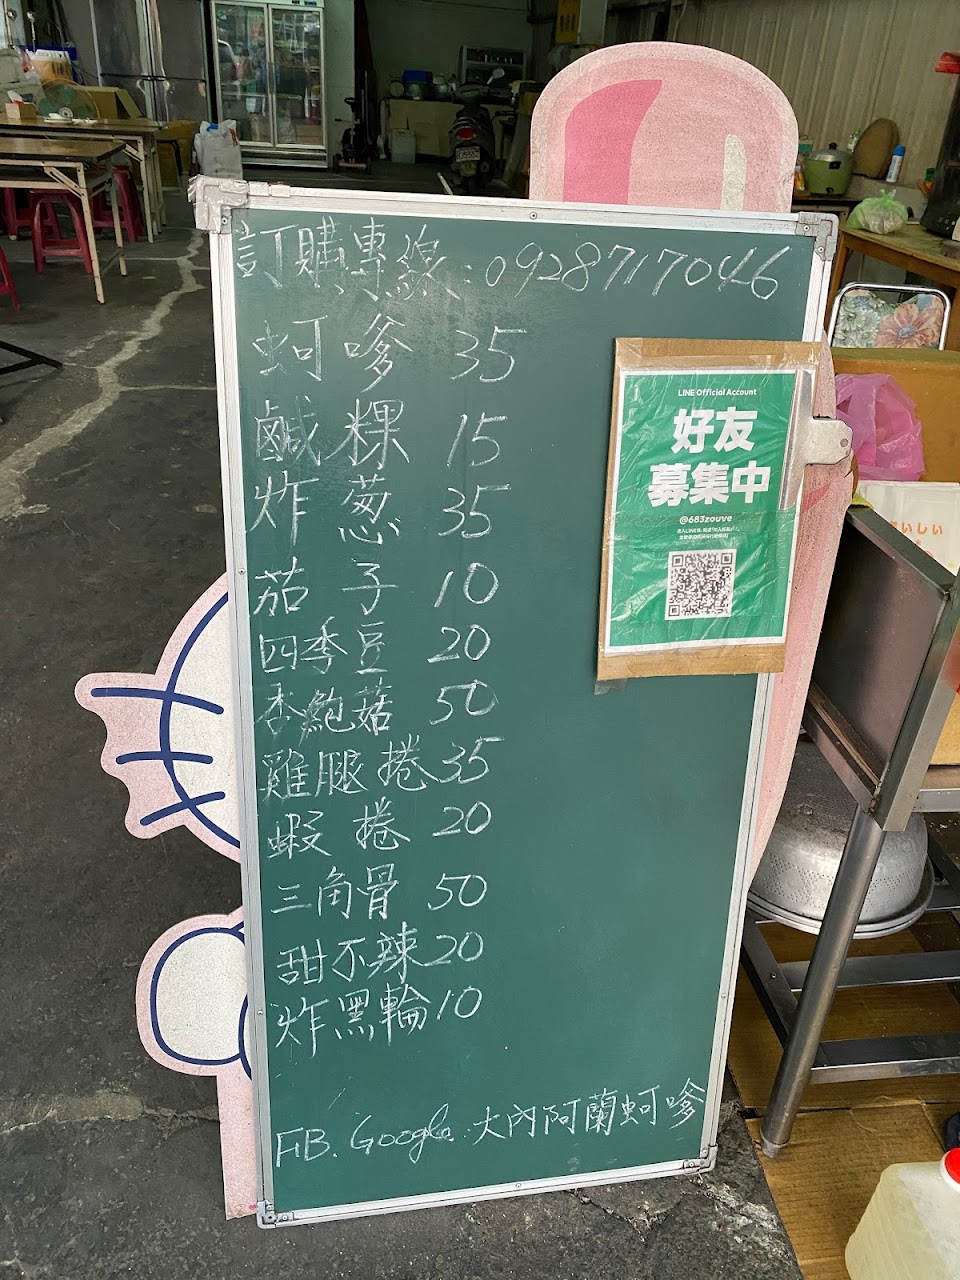 訂購專線:0928717046
蚵嗲 35
鹹粿 15
炸葱 35
茄子 10
四季豆 20
杏鮑菇 50
雞腿捲 35
蝦捲 20
三角骨 50
甜不辣 20
炸黑輪 10
FB. Google: 大內阿蘭蚵嗲
LINE Official Account
好友
募集中
@683zouve
おいしい